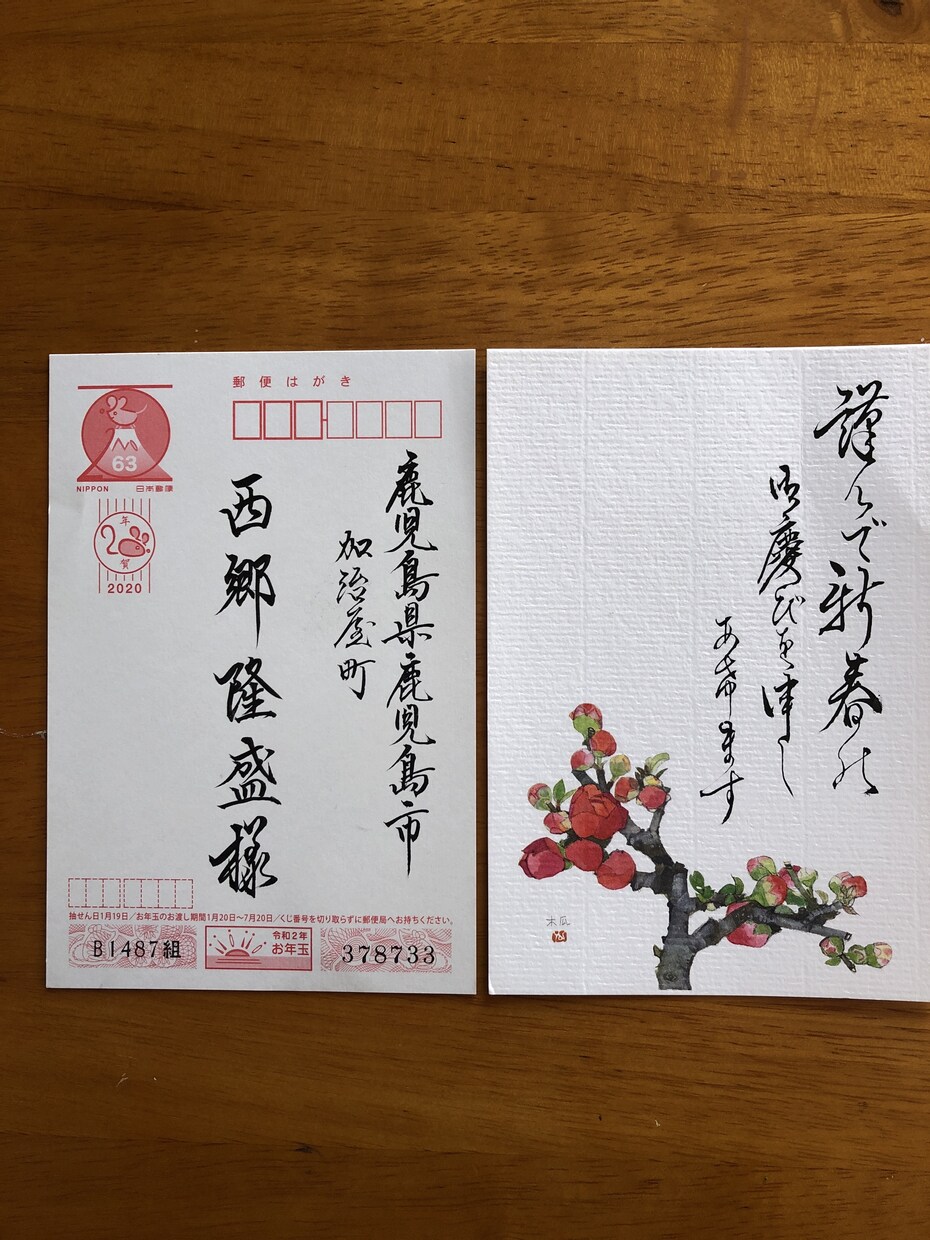 郵便はがき
63
NIPPON 日本郵便
年
賀
2020
鹿児島県鹿児島市
加治屋町
西郷隆盛様
抽せん日1月19日/お年玉のお渡し期間1月20日〜7月20日/くじ番号を切り取らずに郵便局へお持ちください。
B1487組
令和2年
お年玉
378733
謹んで新春の
御慶びを申し
あげます
木瓜